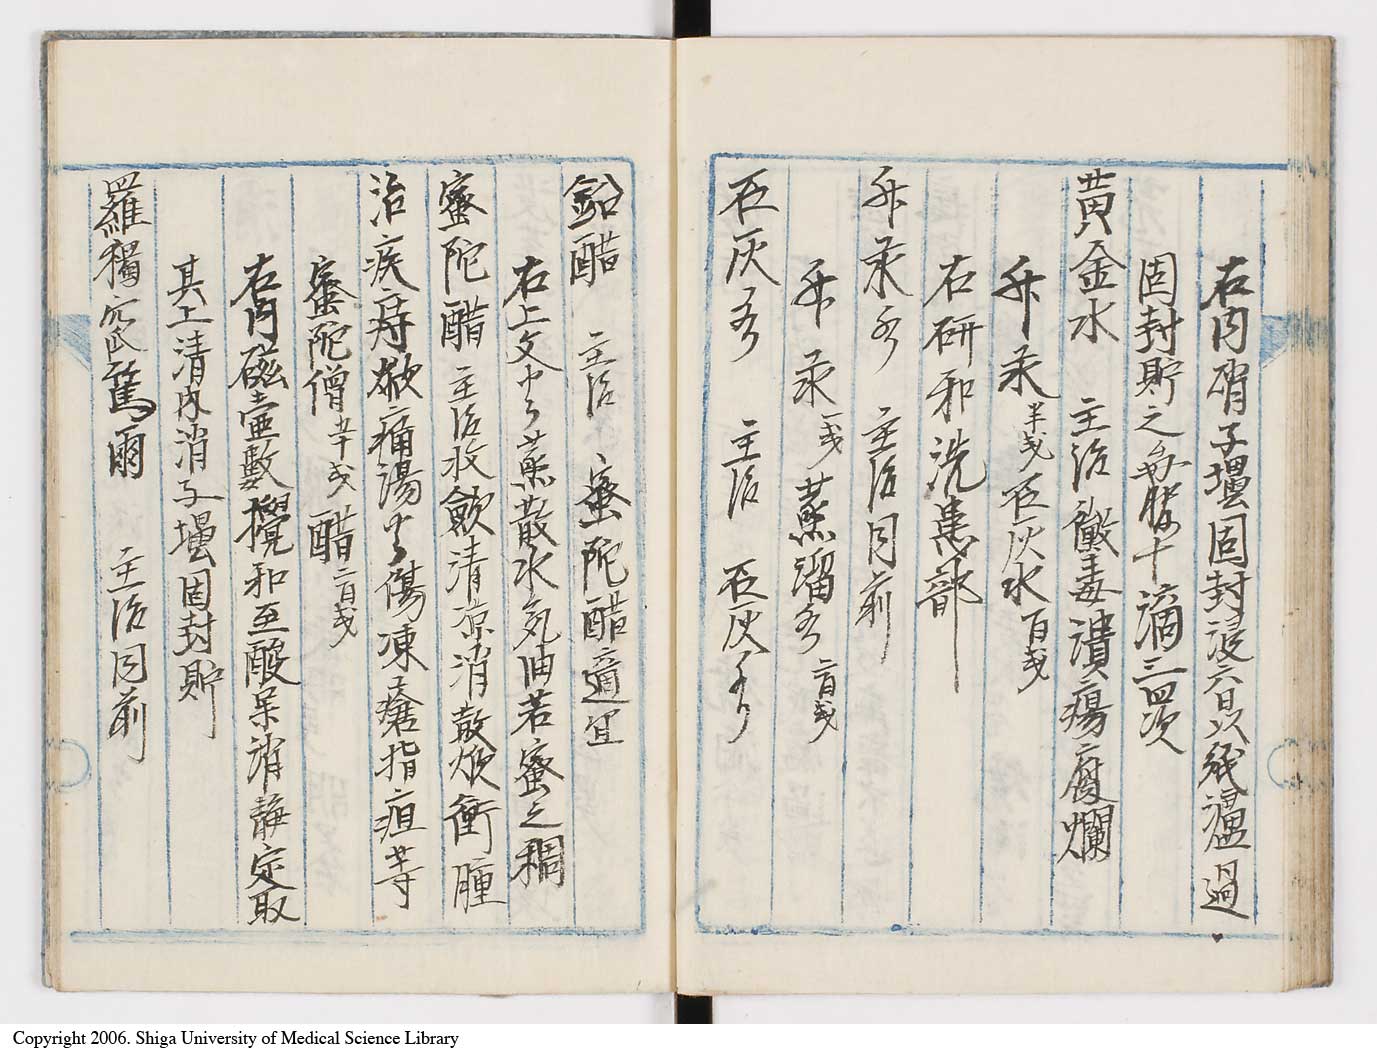 右内硝子壜固封浸六日以紙濾過
固封貯之每服十滴三四次
黄金水 主治黴毒潰瘍腐爛
升汞半戔石灰水百戔
右研和洗患部
升汞水 主治同前
升汞一戔蒸溜水二百戔
石灰水 主治 石灰
鉛醋 主治 蜜陀醋適宜
右上文中 蒸散水気油若蜜之稠
蜜陀醋 主治收斂清涼消散焮衝腫
治疾 焮痛湯火傷凍瘡指疽等
蜜陀僧五十戔醋二百戔
右内磁壷數攪和至酸 消静定取
其上清内消子壜固封貯
羅獨 篤爾 主治同前
Copyright 2006. Shiga University of Medical Science Library